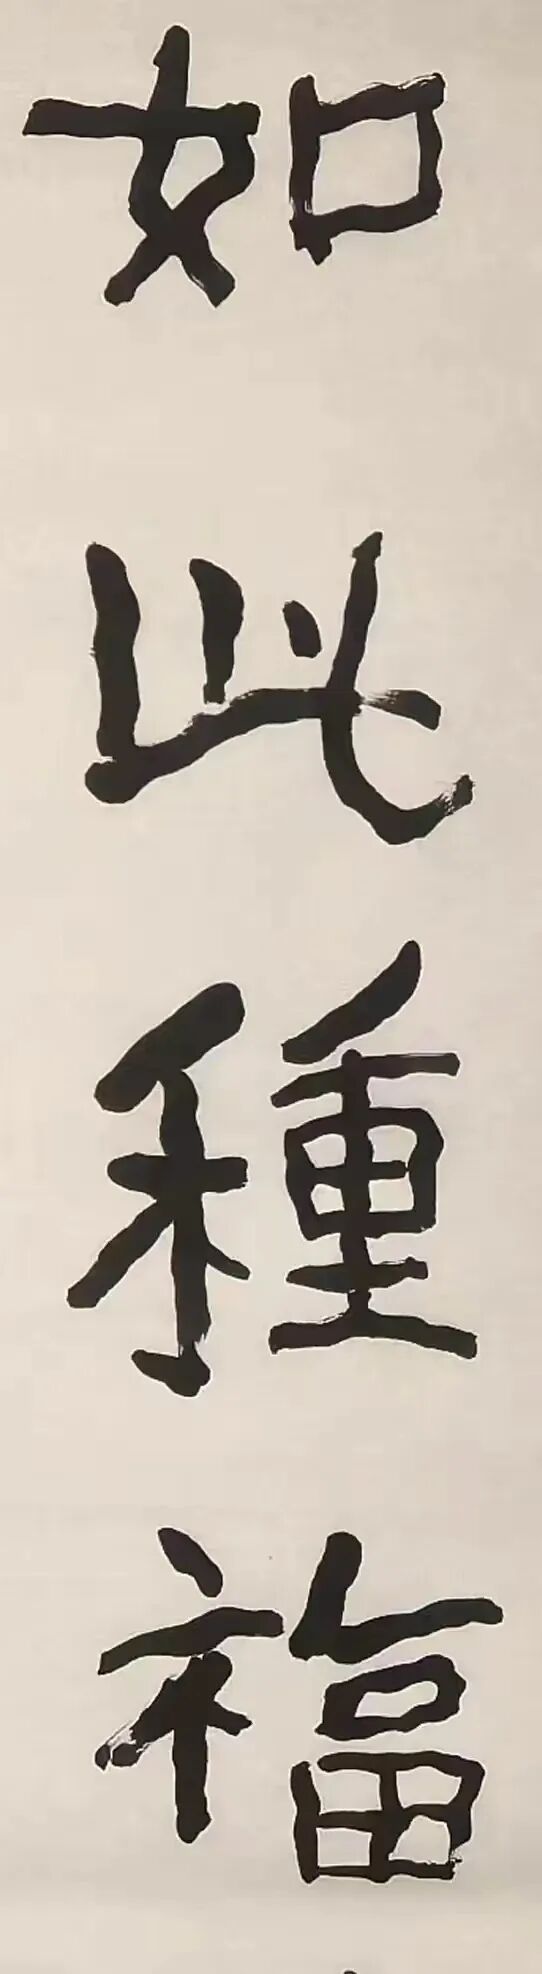 如此種福